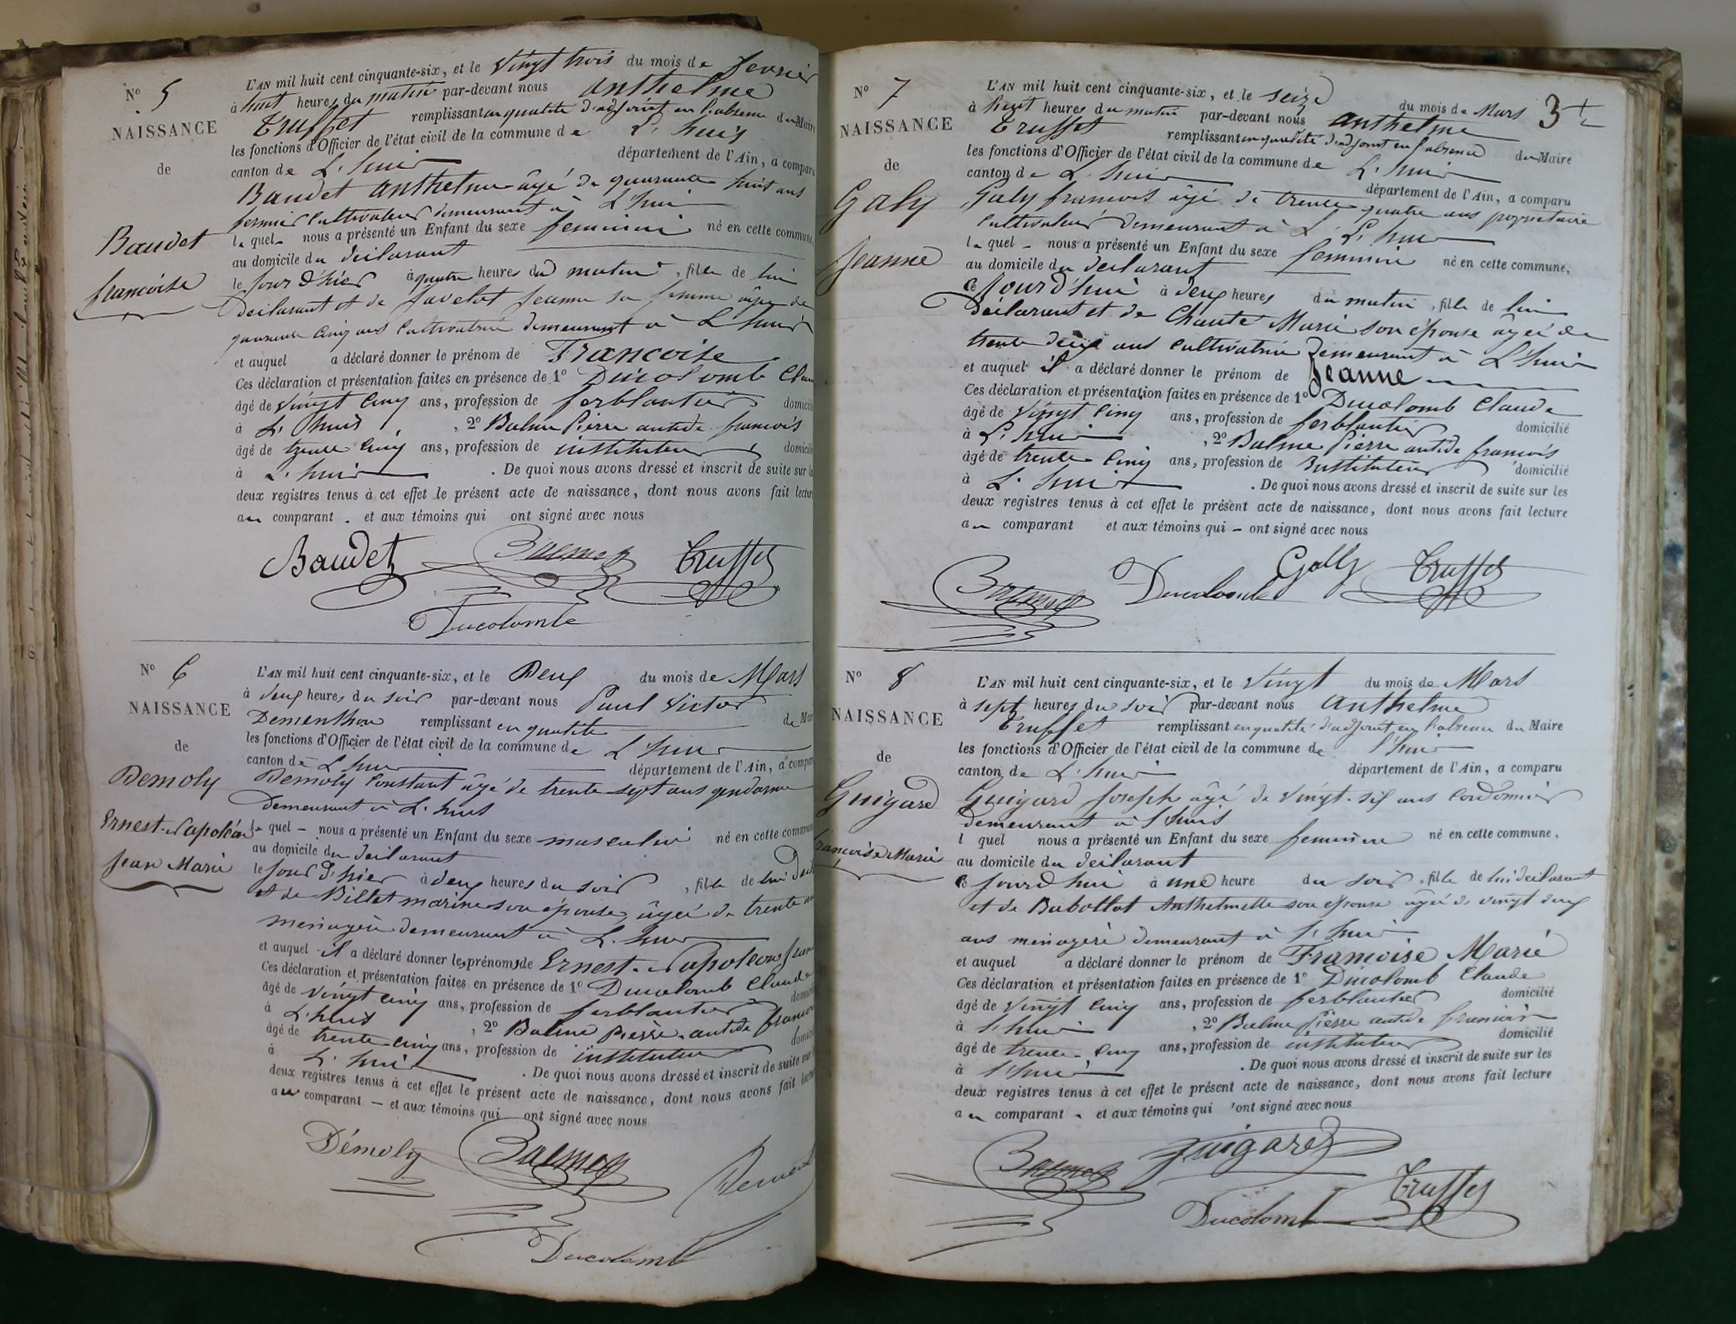 N° 5
NAISSANCE
de
Baudet
francoise
L'AN mil huit cent cinquante-six, et le vingt trois du mois de fevrier
à huit heures du matin par-devant nous anthelme
Truffet remplissant en qualité d'adjoint en l'absence du Maire
les fonctions d'Officier de l'état civil de la commune de L'huis
canton de L'huis département de l'Ain, a comparu
Baudet anthelme âgé de quarante huit ans
fermier cultivateur demeurant à L'huis
le quel nous a présenté un Enfant du sexe feminin né en cette commune,
au domicile du declarant
le jour d'hier à quatre heures du matin, fille de lui
declarant et de Javelot Jeanne sa femme âgée de
quarante cinq ans cultivatrice demeurant à L'huis
et auquel a déclaré donner le prénom de Francoise
Ces déclaration et présentation faites en présence de 1° Ducolomb Claude
âgé de vingt cinq ans, profession de ferblantier domicilié
à L'huis, 2° Balme Pierre antide francois
âgé de trente cinq ans, profession de instituteur domicilié
à L'huis. De quoi nous avons dressé et inscrit de suite sur les
deux registres tenus à cet effet le présent acte de naissance, dont nous avons fait lecture
au comparant et aux témoins qui ont signé avec nous
Baudet Balme Truffet
Ducolomb
N° 6
NAISSANCE
de
Demoly
Ernest-Napoléon
Jean Marie
L'AN mil huit cent cinquante-six, et le Deux du mois de Mars
à deux heures du soir par-devant nous Paul Victor
Dementhon remplissant en qualité de Maire
les fonctions d'Officier de l'état civil de la commune de L'huis
canton de L'huis département de l'Ain, a comparu
Demoly Constant âgé de trente sept ans gendarme
demeurant à L'huis
le quel nous a présenté un Enfant du sexe masculin né en cette commune
au domicile du declarant
le jour d'hier à deux heures du soir, fils de lui Decl
et de Billet marine son épouse, âgée de trente ans
menagère demeurant à L'huis
et auquel il a déclaré donner les prénoms de Ernest-Napoléon Jean
Ces déclaration et présentation faites en présence de 1° Ducolomb Claude
âgé de vingt cinq ans, profession de ferblantier domicilié
à L'huis, 2° Balme pierre antide francois
âgé de trente cinq ans, profession de instituteur domicilié
à L'huis. De quoi nous avons dressé et inscrit de suite sur les
deux registres tenus à cet effet le présent acte de naissance, dont nous avons fait lecture
au comparant et aux témoins qui ont signé avec nous
Démoly Balme
Ducolomb
3
N° 7
NAISSANCE
de
Galy
Jeanne
L'AN mil huit cent cinquante-six, et le seize du mois de Mars
à huit heures du matin par-devant nous anthelme
Truffet remplissant en qualité d'adjoint en l'absence du Maire
les fonctions d'Officier de l'état civil de la commune de L'huis
canton de L'huis département de l'Ain, a comparu
Galy francois âgé de trente quatre ans propriétaire
cultivateur demeurant à L'huis
le quel nous a présenté un Enfant du sexe feminin né en cette commune,
au domicile du declarant
ce jourd'hui à deux heures du matin, fille de lui
déclarant et de Chanté Marie son épouse âgée de
trente deux ans cultivatrice demeurant à L'huis
et auquel il a déclaré donner le prénom de Jeanne
Ces déclaration et présentation faites en présence de 1° Ducolomb Claude
âgé de vingt cinq ans, profession de ferblantier domicilié
à L'huis, 2° Balme pierre antide francois
âgé de trente cinq ans, profession de instituteur domicilié
à L'huis. De quoi nous avons dressé et inscrit de suite sur les
deux registres tenus à cet effet le présent acte de naissance, dont nous avons fait lecture
au comparant et aux témoins qui ont signé avec nous
Balme Ducolomb Gally Truffet
N° 8
NAISSANCE
de
Guigard
francoise Marie
L'AN mil huit cent cinquante-six, et le vingt du mois de Mars
à sept heures du soir par-devant nous anthelme
Truffet remplissant en qualité d'adjoint en l'absence du Maire
les fonctions d'Officier de l'état civil de la commune de l'huis
canton de L'huis département de l'Ain, a comparu
Guigard Joseph âgé de vingt-six ans cordonnier
demeurant à l'huis
l quel nous a présenté un Enfant du sexe feminin né en cette commune,
au domicile du declarant
ce jourd'hui à une heure du soir, fille de lui declarant
et de Bubollot Anthelmette son epouse âgée de vingt deux
ans menagère demeurant à l'huis
et auquel a déclaré donner le prénom de Francoise Marie
Ces déclaration et présentation faites en présence de 1° Ducolomb Claude
âgé de vingt cinq ans, profession de ferblantier domicilié
à l'huis, 2° Balme pierre antide francois
âgé de trente-cinq ans, profession de instituteur domicilié
à l'huis. De quoi nous avons dressé et inscrit de suite sur les
deux registres tenus à cet effet le présent acte de naissance, dont nous avons fait lecture
au comparant et aux témoins qui ont signé avec nous
Balme guigard
Ducolomb Truffet